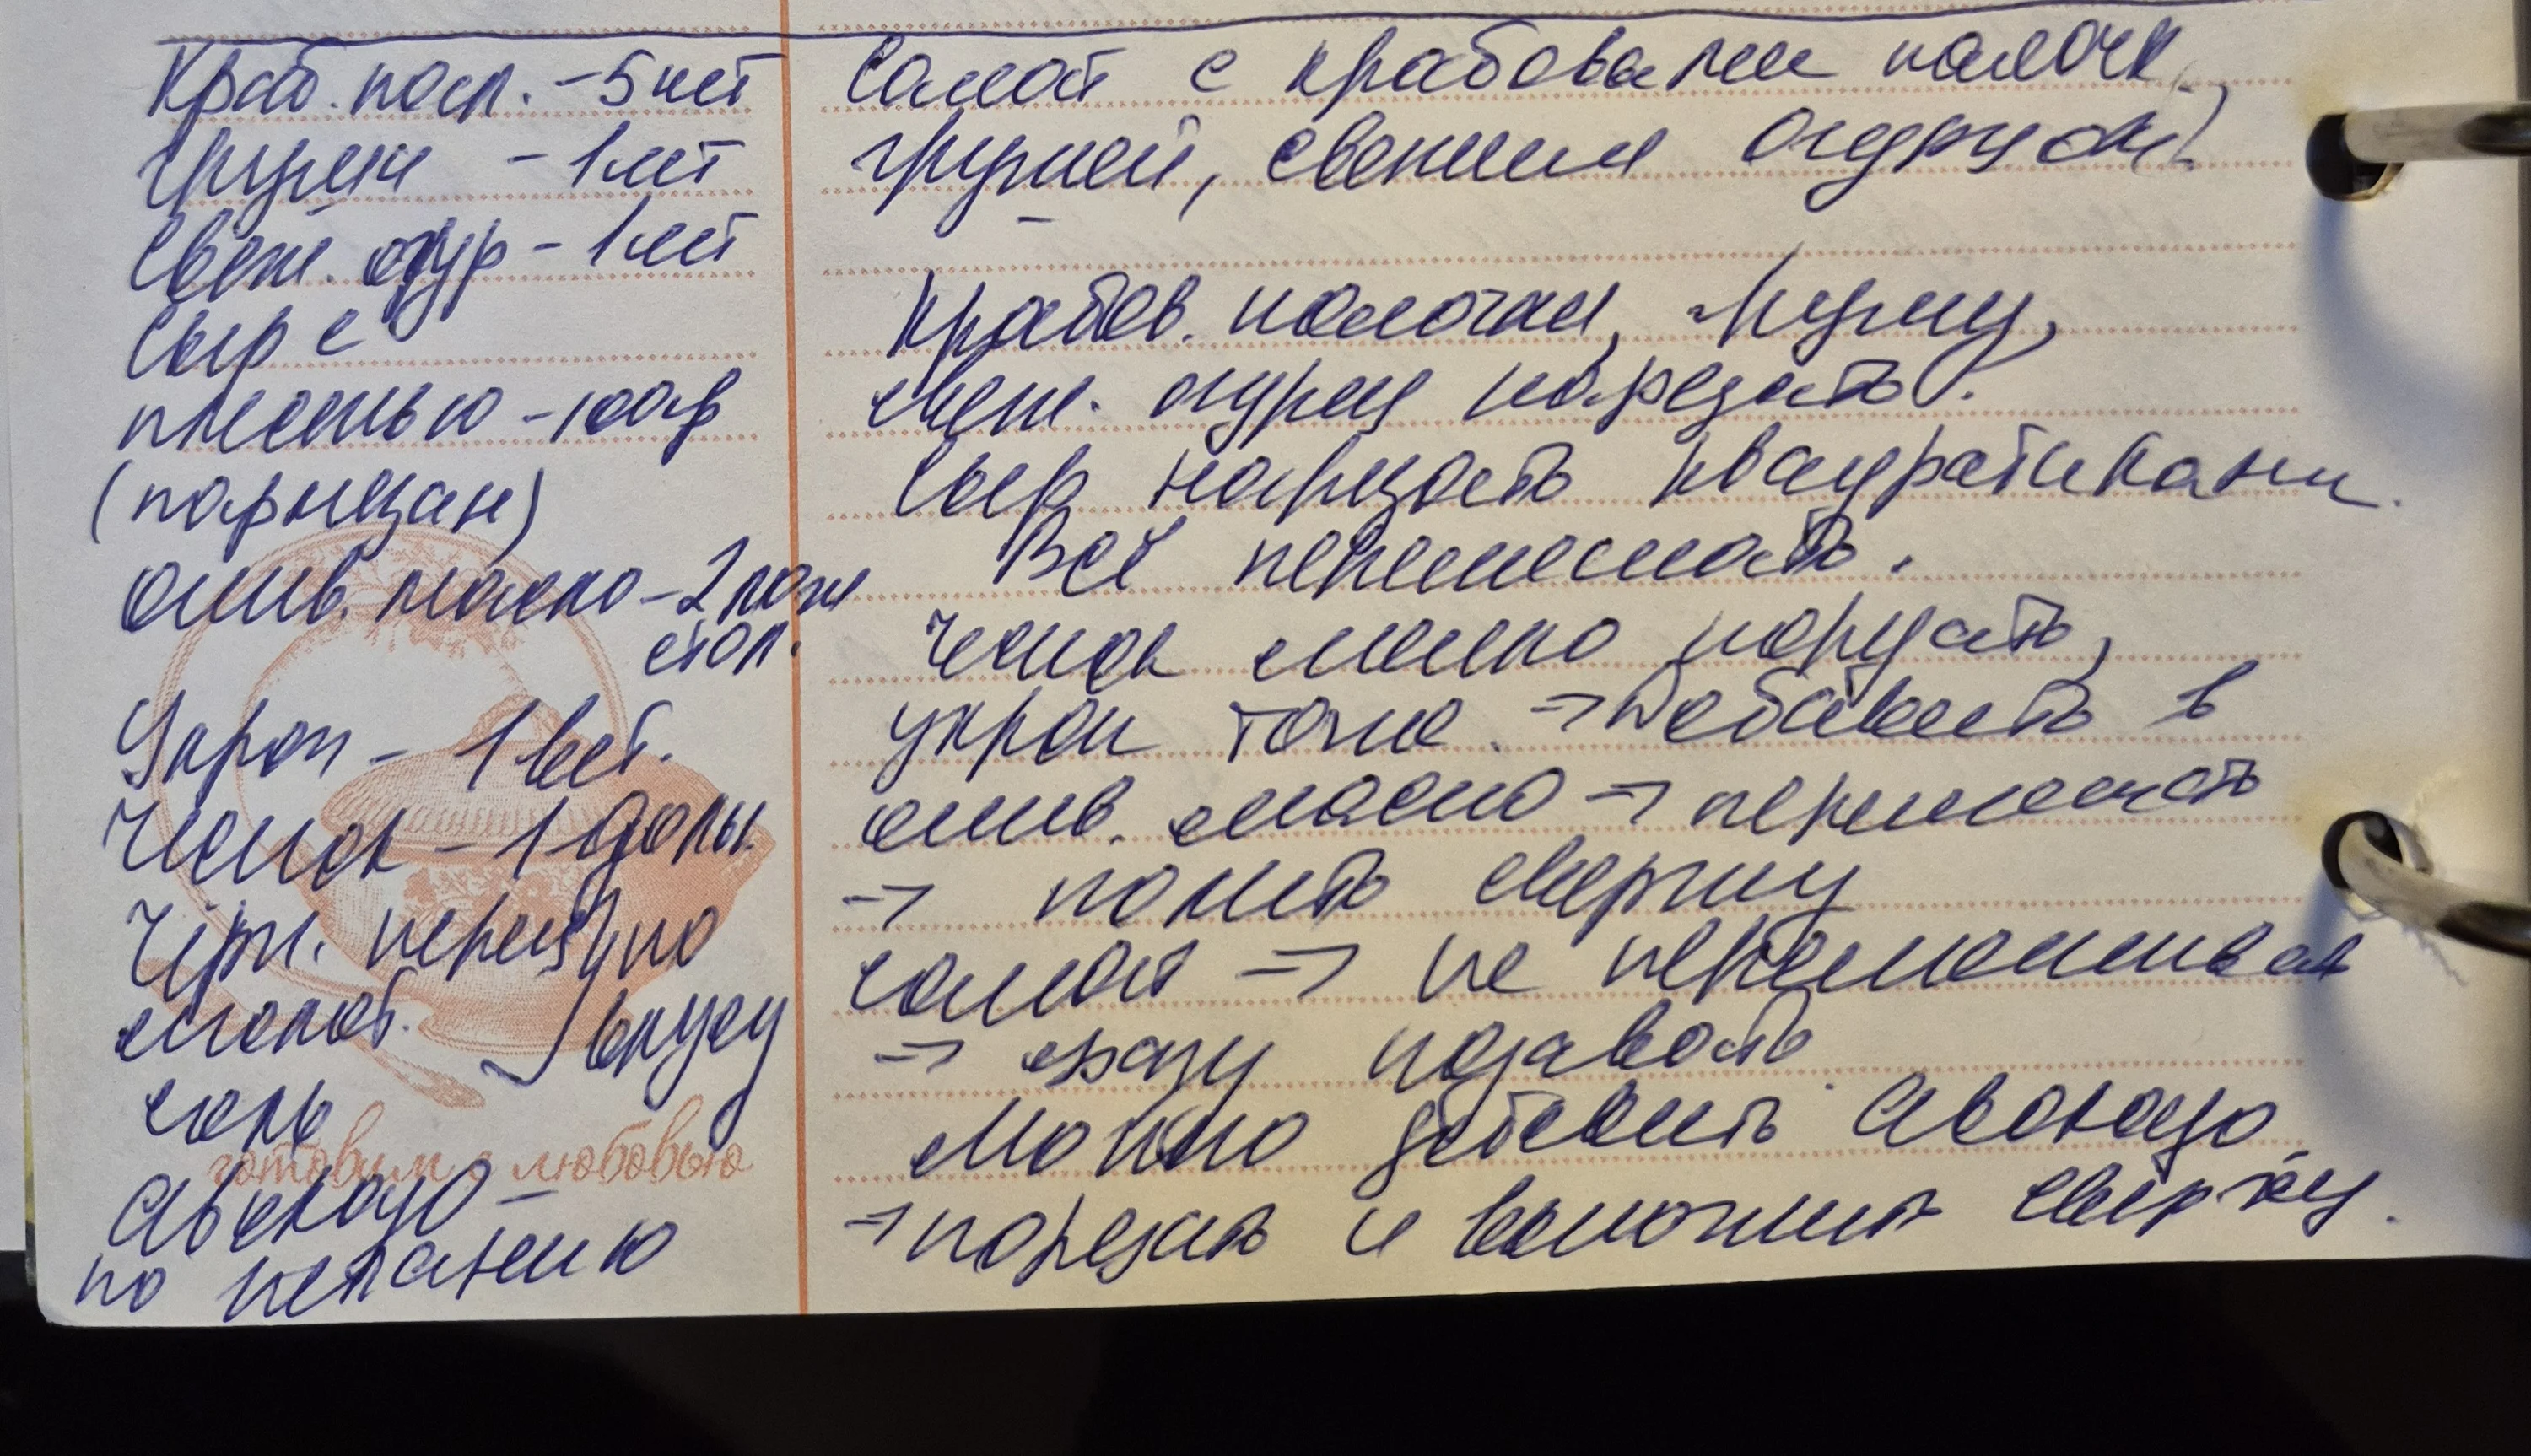 Краб. пал. - 5 шт
Груши - 1 шт
Свеж. огур - 1 шт
Сыр с
плесенью - 100 гр
(пармезан)
олив. масло - 2 лож
стол.
Укроп - 1 вет.
Чеснок - 1 дольк
Чёрн. перец } по
молот. вкусу
соль
готовим с любовью
Авокадо -
по желанию
Салат с крабовыми палочк.
грушей, свежим огурцом
Крабов. палочки, грушу,
свеж. огурец порезать.
Сыр нарезать квадратиками.
Всё перемешать.
Чеснок мелко порезать,
укроп тоже. → добавить в
олив. масло → перемешать
→ полить сверху
салат → не перемешивая
→ сразу подавать.
Можно добавить авокадо
→ порезать и выложить сверху.